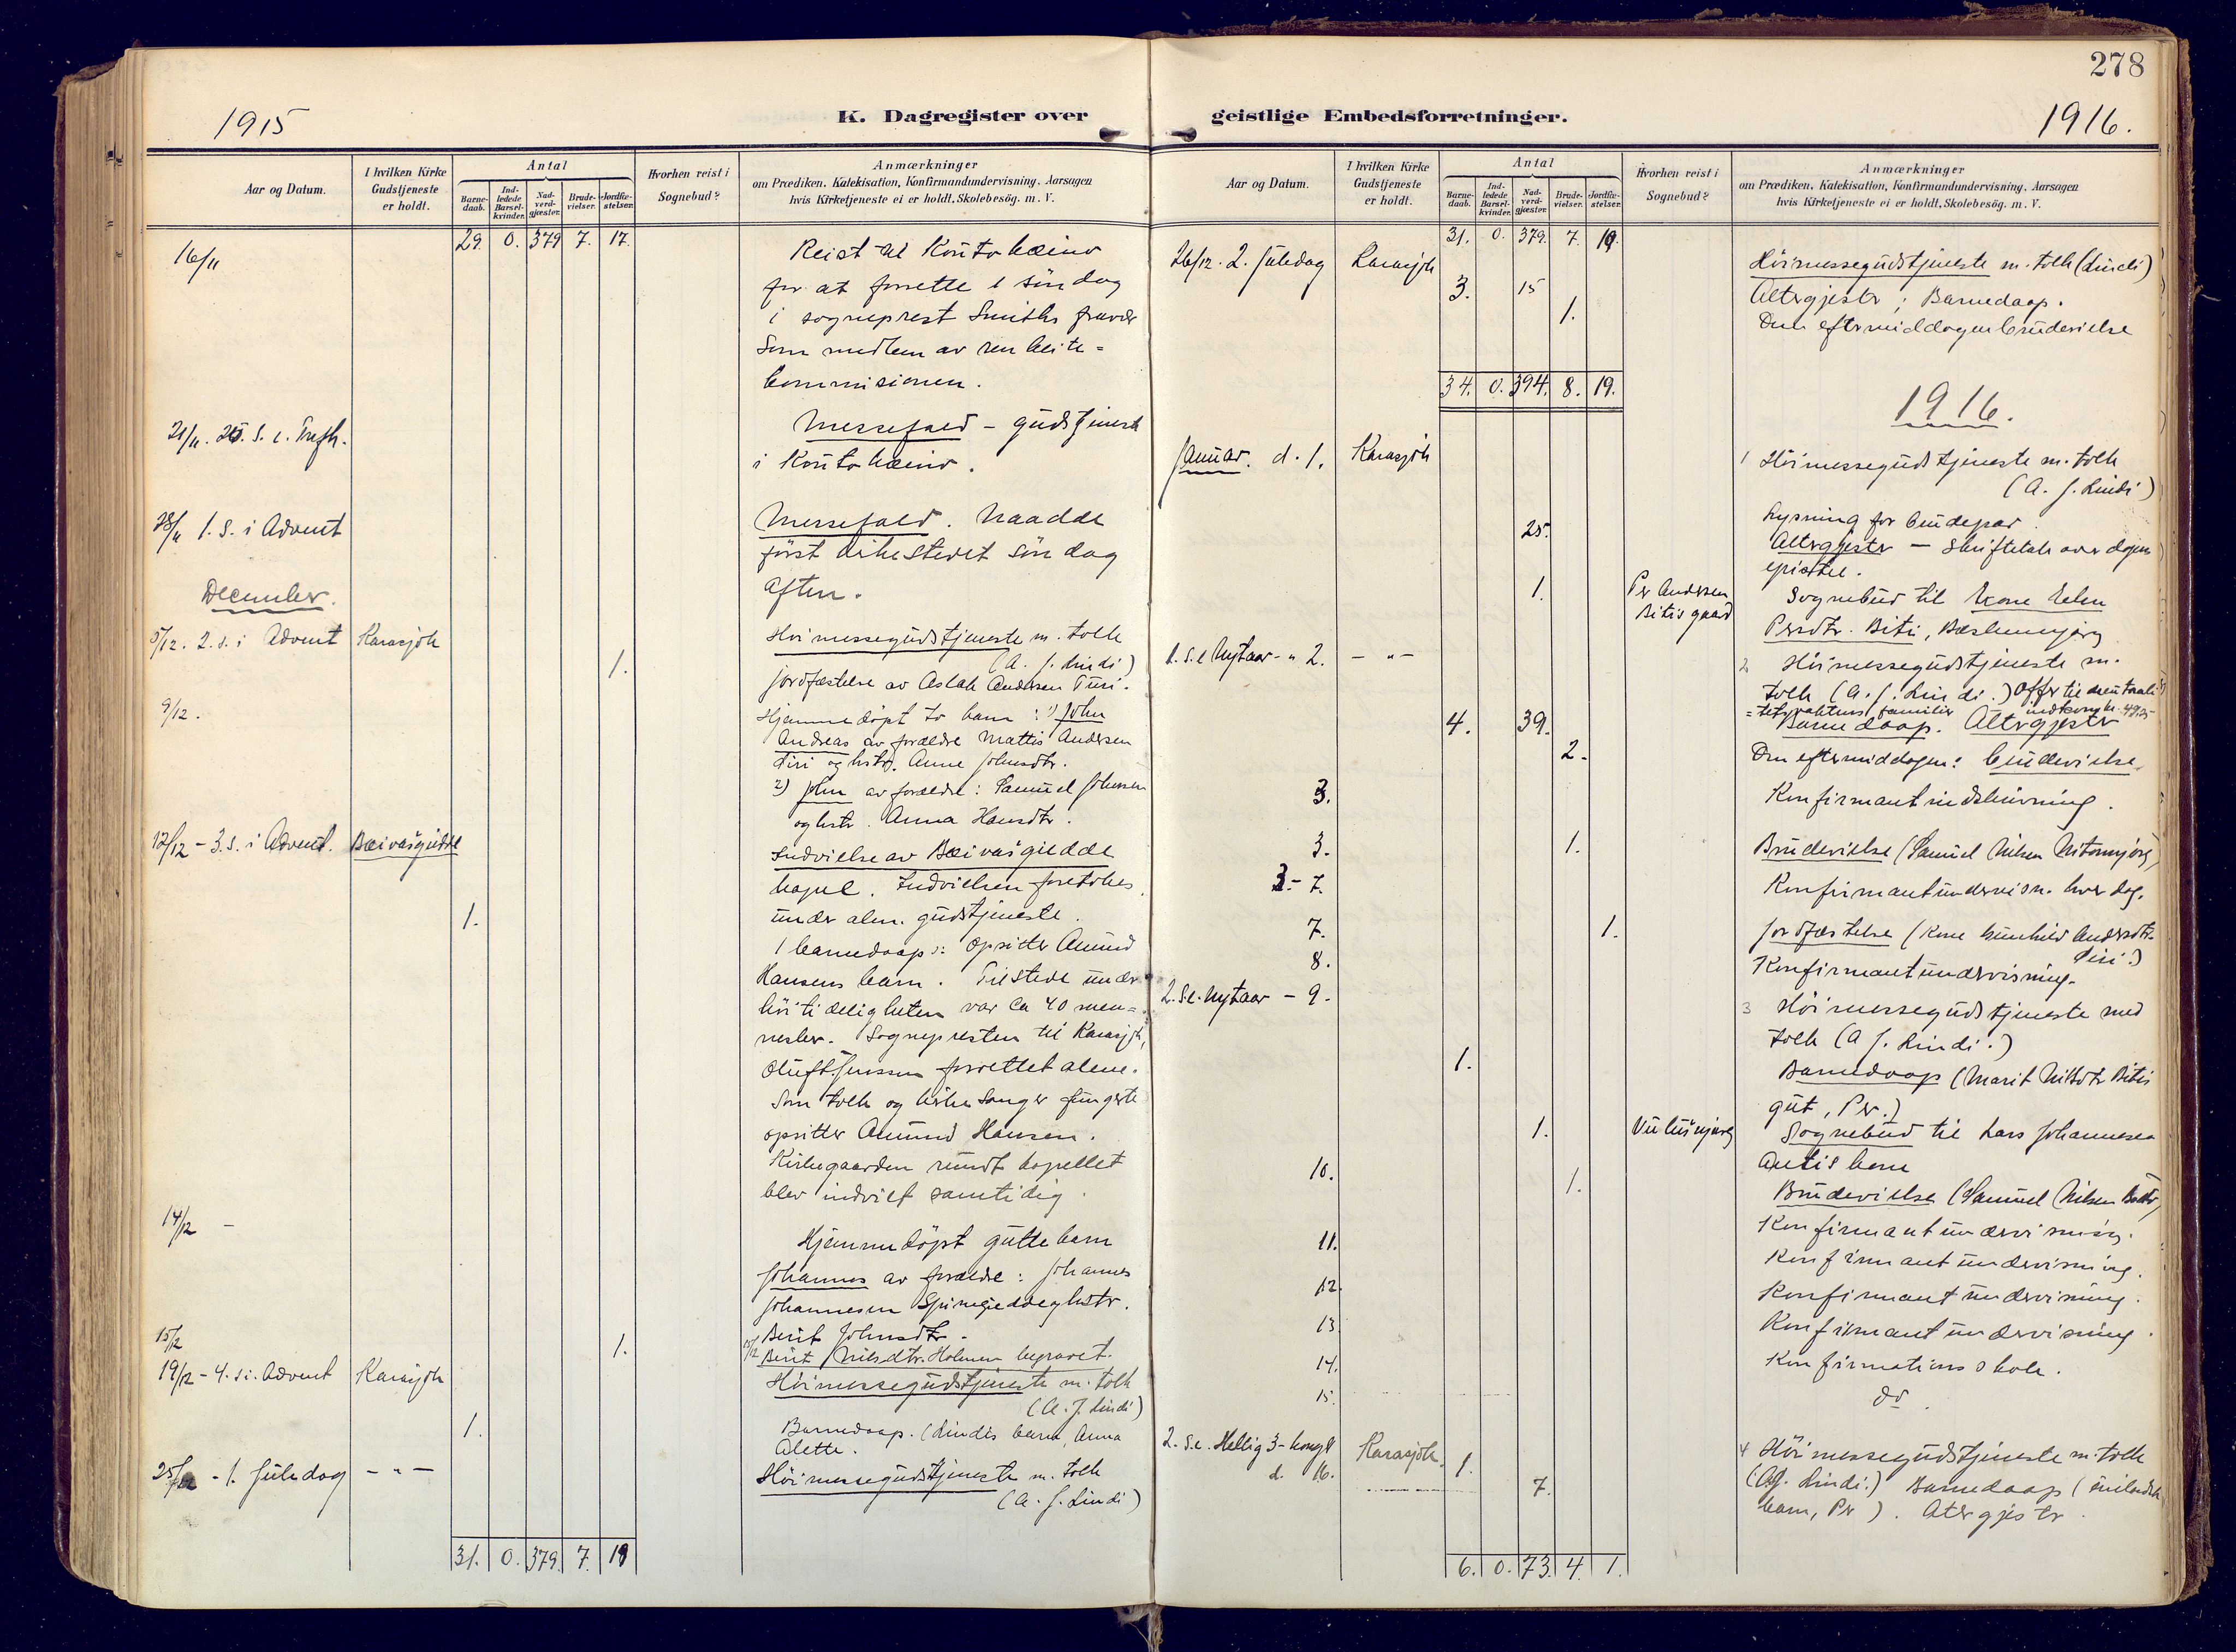 278
1915
K. Dagregister over
geistlige Embedsforretninger.
1916.
Aar og Datum.
I hvilken Kirke Gudstjeneste er holdt.
Antal
Barne-daab.
Ind-ledede Barsel-kvinder.
Nad-verd-gjæster.
Brude-vielser.
Jordfæ-stelser.
Hvorhen reist i Sognebud?
Anmærkninger
om Prædiken, Katekisation, Konfirmandundervisning, Aarsagen
hvis Kirketjeneste ei er holdt, Skolebesög. m. V.
29. 0. 379 7. 17.
16/11
Reist til Koutokæino
for at forrette 1 søndag
i sogneprest Smiths fravær
som medlem av renbeite-
kommisionen.
21/11. 25. S. e. Trefh.
Messefald - gudstjeneste
i Koutokæino.
28/11 1. S. i Advent
Messefald. Naadde
først kirkestedet søndag
aften.
December.
5/12. 2. s. i Advent Karasjok
Høimessegudstjeneste m. tolk
(A. J. Lindi)
1.
Jordfæstelse av Aslak Andersen Turi.
9/12.
Hjemmedøpt to barn: 1) John
Andreas av forældre Mattis Andersen
Siri og hstr. Anne Johnsdtr.
2) John av forældre: Samuel Johnsen
og hstr. Anna Hansdtr.
12/12 - 3. S. i Advent. Bæivašgiedde
Indvielse av Bæivašgiedde
kapel. Indvielsen foretokes
1.
under alm. gudstjeneste.
1 barnedaap: opsitter Amund
Hansens barn. Tilstede under
høitideligheten var ca 40 men-
nesker. Sognepresten til Karasjok,
Oluf T. Jenssen forrettet alene.
Som tolk og kirkesanger fungerte
opsitter Amund Hansen.
Kirkegaarden rundt kapellet
blev indviet samtidig.
14/12 -
Hjemmedøpt guttebarn
Johannes av forældre: Johannes
Johannesen og hstr.
Berit Johnsdtr.
15/12
1.
15/12 Berit Nilsdtr. Holmen begravet.
19/12 - 4. s. i. Advent Karasjok
Høimessegudstjeneste m. tolk
(A. J. Lindi)
1.
Barnedaap. (Lindis barn, Anna
Alette.
25/12 - 1. Juledag - " -
Høimessegudstjeneste m. tolk
(A. J. Lindi)
31. 0. 379. 7. 19
Aar og Datum.
I hvilken Kirke Gudstjeneste er holdt.
Antal
Barne-daab.
Ind-ledede Barsel-kvinder.
Nad-verd-gjæster.
Brude-vielser.
Jordfæ-stelser.
Hvorhen reist i Sognebud?
Anmærkninger
om Prædiken, Katekisation, Konfirmandundervisning, Aarsagen
hvis Kirketjeneste ei er holdt, Skolebesög. m. V.
31. 0. 379. 7. 19.
26/12. 2. Juledag Karasjok
Høimessegudstjeneste m. tolk (Lindi)
3. 15
Altergjester; Barnedaap.
1.
Om eftermiddagen brudevielse
34. 0. 394. 8. 19.
1916.
Januar. d. 1. Karasjok
1 Høimessegudstjeneste m. tolk
(A. J. Lindi)
Lysning for brudepar.
25.
Altergjester - Skriftetale over dagens
epistel.
1. Per Andersen
Bitis gaard
Sognebud til kone Elen
Persdtr. Biti,
1. S. e Nytaar - " 2. - " -
2 Høimessegudstjeneste m.
tolk (A. J. Lindi.) Offer til neutrali-
tetsvaktens familier indkom kr. 49.25
4. 39.
Barnedaap. Altergjester
2.
Om eftermiddagen: brudevielse.
3.
Konfirmantindskrivning.
3. 1.
Brudevielse (Samuel Nilsen
3.- 7.
Konfirmantundervisn. hver dag.
7. 1.
Jordfæstelse (kone Gunhild Andersdtr.
Siri.)
8.
Konfirmantundervisning.
2. S. e. Nytaar - 9.
3 Høimessegudstjeneste med
tolk (A. J. Lindi.)
1.
Barnedaap (Marit Nilsdtr Bitis
gut, Per.)
1.
Sognebud til Lars Johannesen
Autis barn
10. 1.
Brudevielse (Samuel Nilsen
Konfirmantundervisning.
11.
Konfirmantundervisning.
12.
Konfirmantundervisning.
13.
Konfirmantundervisning.
14.
Konfirmationsskole.
15.
do.
2. S. e. Hellig 3-kong.
d. 16. Karasjok. 1.
4 Høimessegudstjeneste m. tolk
(A. J. Lindi.) Barnedaap (
7.
barn, Per). Altergjestr.
6. 0. 73. 4. 1.